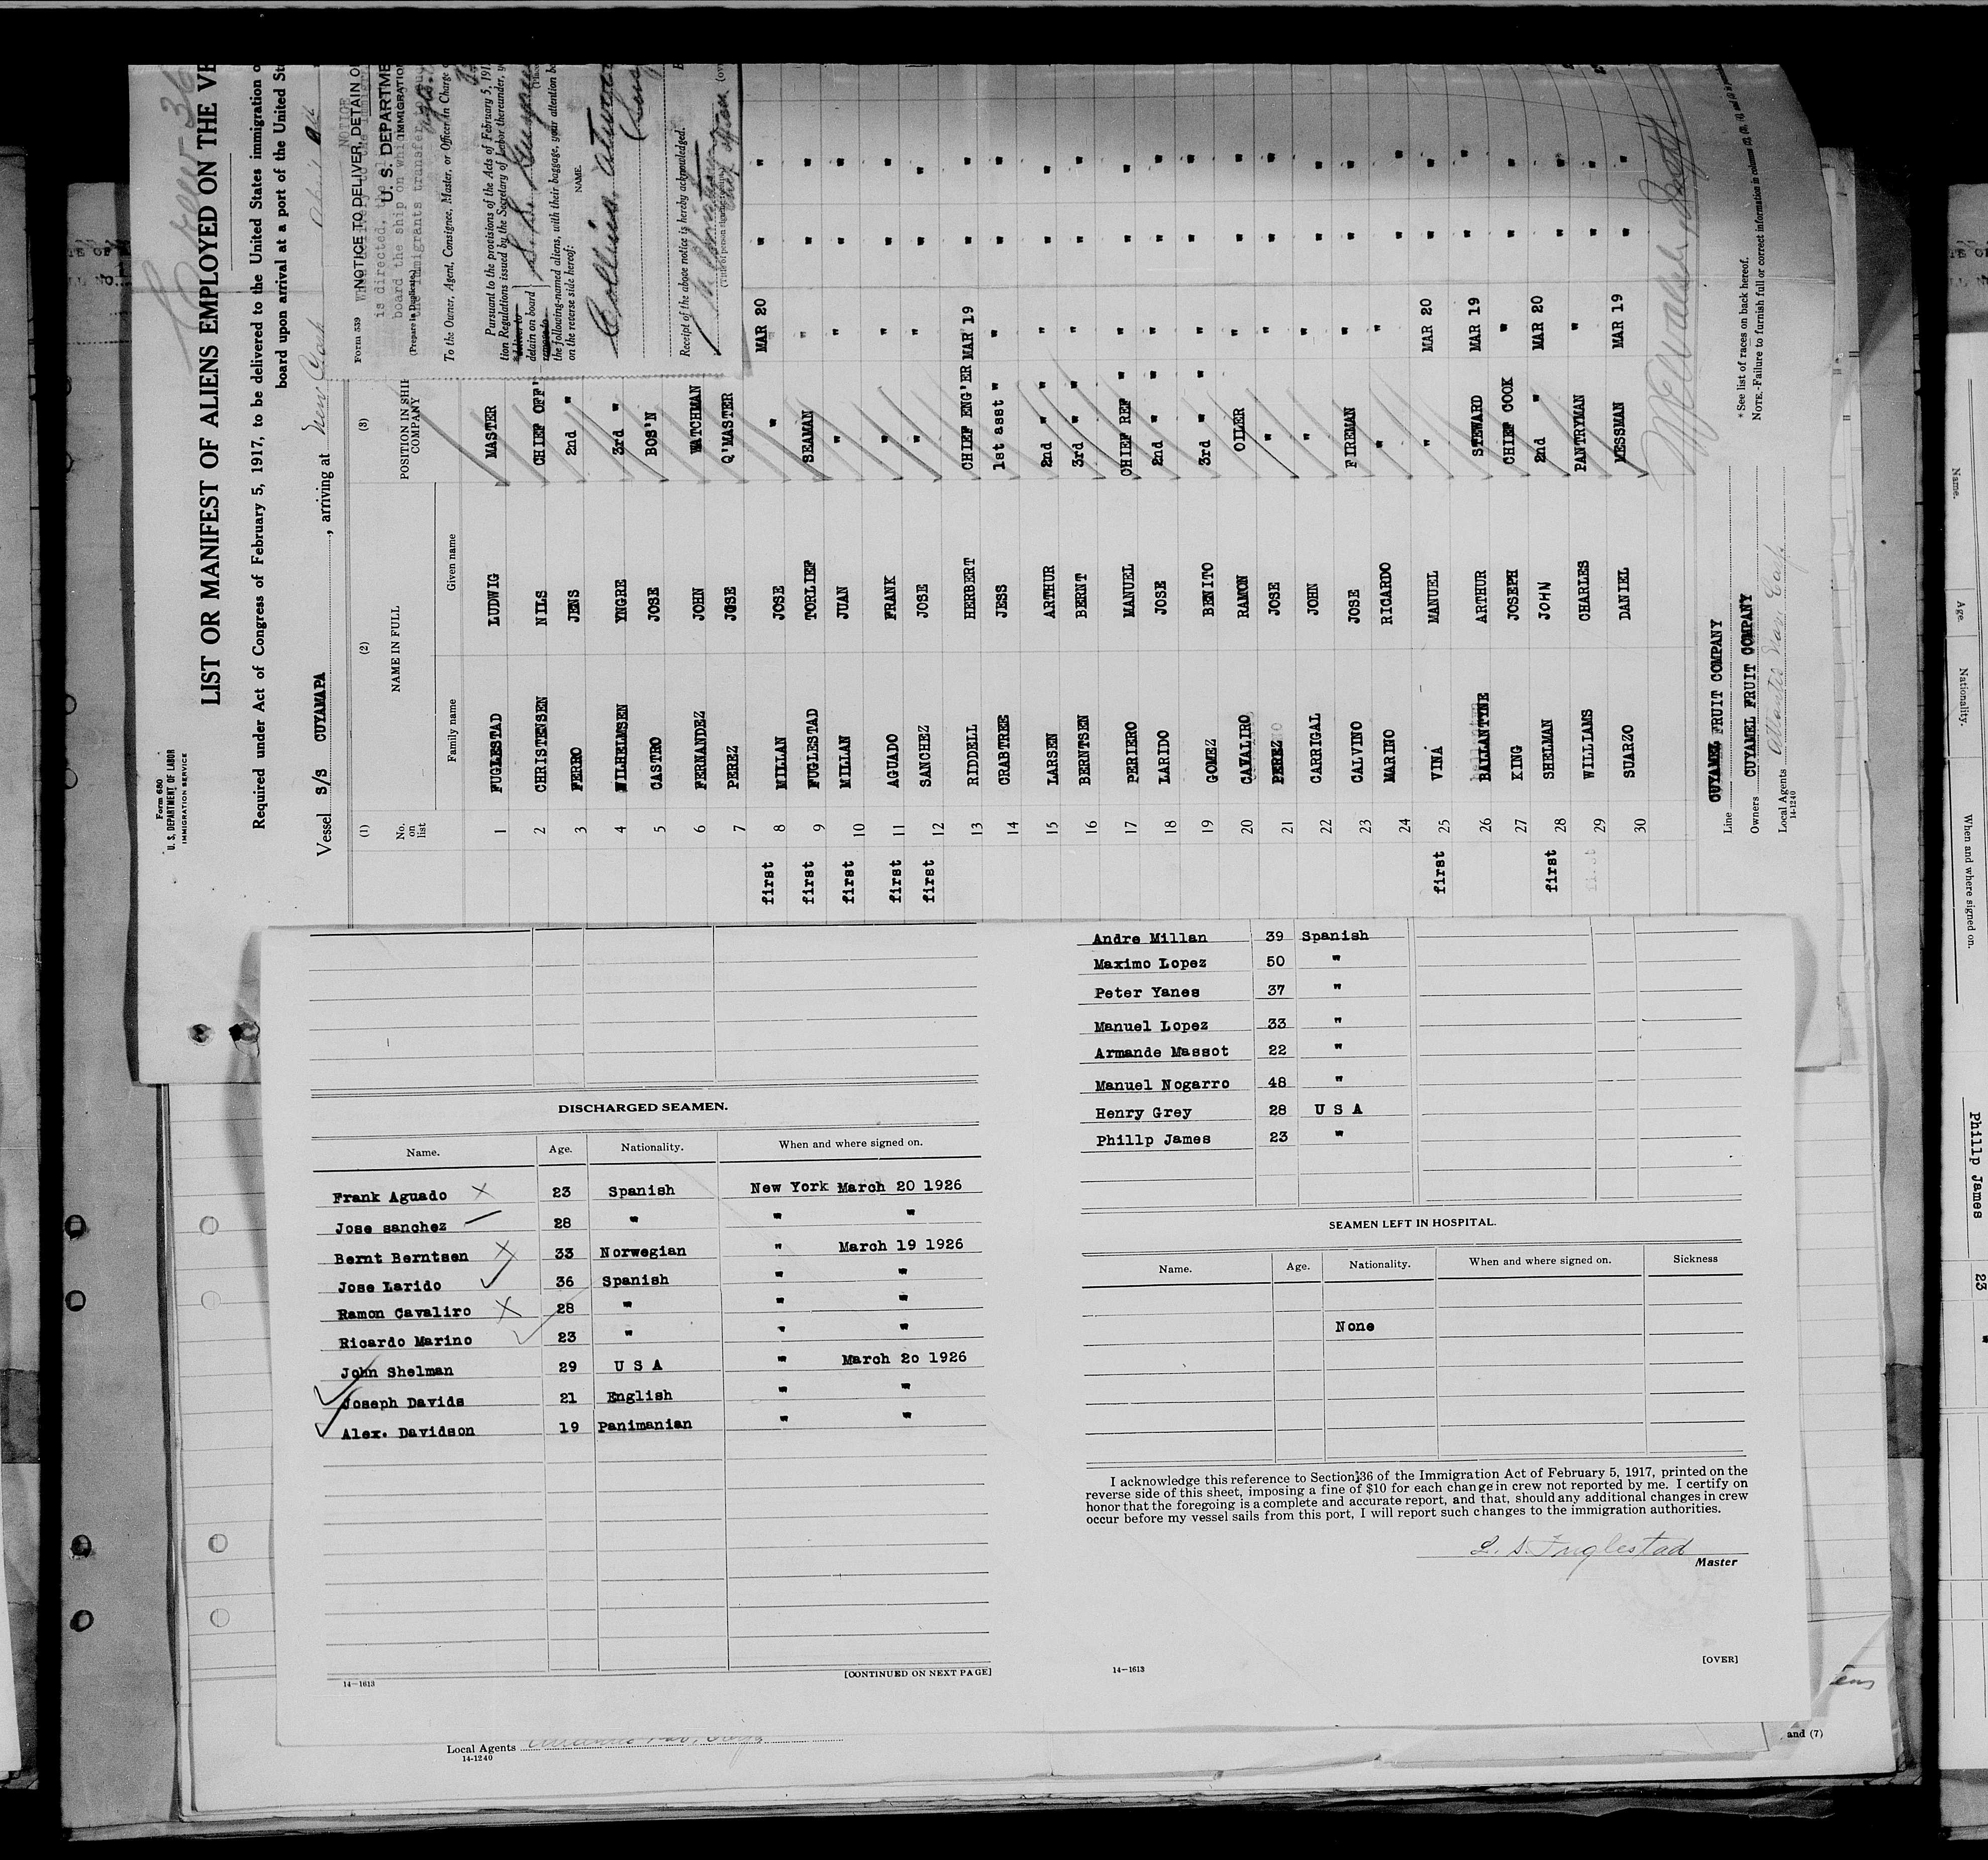 Form 680
U. S. DEPARTMENT OF LABOR
IMMIGRATION SERVICE
LIST OR MANIFEST OF ALIENS EMPLOYED ON THE
Required under Act of Congress of February 5, 1917, to be delivered to the United States immigration
board upon arrival at a port of the United
Vessel S/S CUYAMAPA, arriving at New York
(1) (2) (3)
No. on list NAME IN FULL POSITION IN SHIP COMPANY
Family name Given name
1 FUGLESTAD LUDWIG MASTER
2 CHRISTENSEN NILS CHIEF OFF'
3 PEDRO JENS 2nd "
4 WILHELMSEN YNGRE 3rd "
5 CASTRO JOSE BOS'N
6 FERNANDEZ JOHN WATCHMAN
7 PEREZ JOSE Q'MASTER MAR 20 " "
first 8 MILLAN JOSE " " " "
first 9 FUGLESTAD TORLIEF SEAMAN " " "
first 10 MILLAN JUAN " " " "
first 11 AGUADO FRANK " " " "
first 12 SANCHEZ JOSE " " " "
13 RIDDELL HERBERT CHIEF ENG'ER MAR 19 " "
14 CRABTREE JESS 1st asst " " " "
15 LARSEN ARTHUR 2nd " " " " "
16 BERNTSEN BERNT 3rd " " " " "
17 PERIERO MANUEL CHIEF REF " " " "
18 LARIDO JOSE 2nd " " " " "
19 GOMEZ BENITO 3rd " " " " "
20 CAVALIRO RAMON OILER " " "
21 PEREZ JOSE " " " "
22 CARRIGAL JOHN " " " "
23 CALVINO JOSE FIREMAN " " "
24 MARINO RICARDO " " " "
first 25 VINA MANUEL " MAR 20 " "
26 BALLANTYNE ARTHUR STEWARD MAR 19 " "
27 KING JOSEPH CHIEF COOK " "
first 28 SHELMAN JOHN 2nd " MAR 20 " "
first 29 WILLIAMS CHARLES PANTRYMAN " " "
30 SUARZO DANIEL MESSMAN MAR 19 " "
Line CUYAMEL FRUIT COMPANY
Owners CUYAMEL FRUIT COMPANY
Local Agents
14-1240
* See list of races on back hereof.
NOTE.-Failure to furnish full or correct information in columns
NOTICE
Form 539 NOTICE TO DELIVER, DETAIN
U. S. DEPARTME
IMMIGRATION
is directed,
board the ship on whi
(Prepare in Duplicate)
To the Owner, Agent, Consignee, Master, or Officer in Charge
Pursuant to the provisions of the Acts of February 5, 191
tion Regulations issued by the Secretary of Labor thereunder,
detain on board S. S.
the following-named aliens, with their baggage, your attention
on the reverse side hereof:
NAME
Collins
Receipt of the above notice is hereby acknowledged.
(Title of person signing receipt)
DISCHARGED SEAMEN.
Name. Age. Nationality. When and where signed on.
Frank Aguado X 23 Spanish New York March 20 1926
Jose sanchez 28 " " "
Bernt Berntsen X 33 Norwegian " March 19 1926
Jose Larido 36 Spanish " "
Ramon Cavaliro X 28 " " "
Ricardo Marino 23 " " "
John Shelman 29 U S A " March 20 1926
Joseph Davids 21 English " "
Alex. Davidson 19 Panimanian " "
14-1613 [CONTINUED ON NEXT PAGE]
Andre Millan 39 Spanish
Maximo Lopez 50 "
Peter Yanes 37 "
Manuel Lopez 33 "
Armande Massot 22 "
Manuel Nogarro 48 "
Henry Grey 28 U S A
Phillp James 23 "
SEAMEN LEFT IN HOSPITAL.
Name. Age. Nationality. When and where signed on. Sickness
None
I acknowledge this reference to Section 36 of the Immigration Act of February 5, 1917, printed on the
reverse side of this sheet, imposing a fine of $10 for each change in crew not reported by me. I certify on
honor that the foregoing is a complete and accurate report, and that, should any additional changes in crew
occur before my vessel sails from this port, I will report such changes to the immigration authorities.
L. S. Fuglestad
Master
14-1613 [OVER]
Local Agents
14-1240
and (7)
Name. Age. Nationality. When and where signed on.
Phillp James 23 "